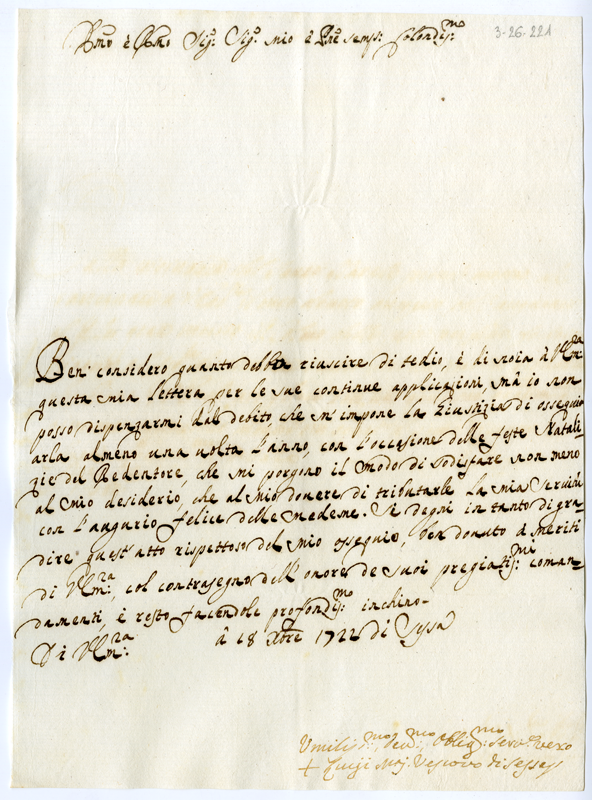 3-26-221
è Sig.r Sig.r mio è Pne semp: Colendis:mo
Ben considero quanto debba riuscire di tedio, è di noia à V.S. Ill:ma
questa mia lettera per le sue continue applicazioni, mà io non
posso dispenzarmi dal debito, che m'impone la Giustizia di ossequi=
arla almeno una uolta l'anno, con l'occasione delle feste Natali=
zie del Redentore, che mi porgono il modo di sodisfare non meno
al mio desiderio, che al mio douere di tributarle la mia seruitù
con l'augurio felice delle medeme. Si degni in tanto di gra=
dire quest'atto rispettoso del mio ossequio, ben donuto à meriti
di V.S. Ill:ma, col contrasegno dell'onore de suoi pregiatis:mi coman=
damenti, è resto facendole profondis:mo inchino-
Di V.S. Ill:ma à 18 Xbre 1722 di Sessa
Vmilis:mo, deu:mo, Oblig:mo Seru.re vero
+ Luigi M.a Vescovo di Sessa